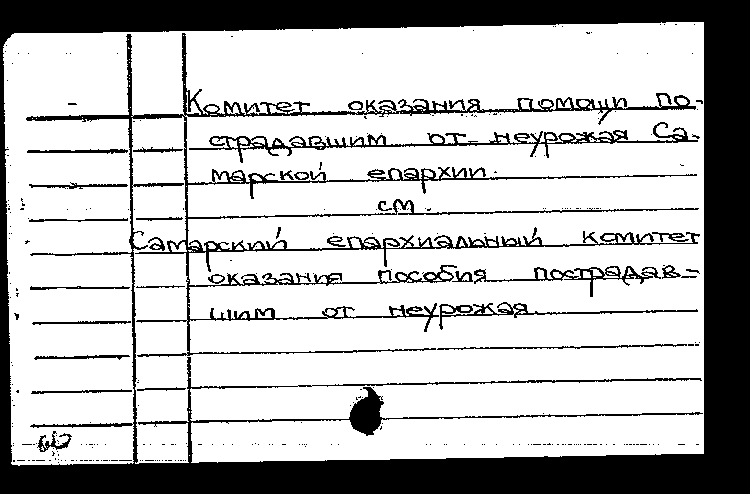 Комитет оказания помощи по-
страдавшим от неурожая Са-
марской епархии.
см.
Самарский епархиальный комитет
оказания пособия пострадав-
шим от неурожая.